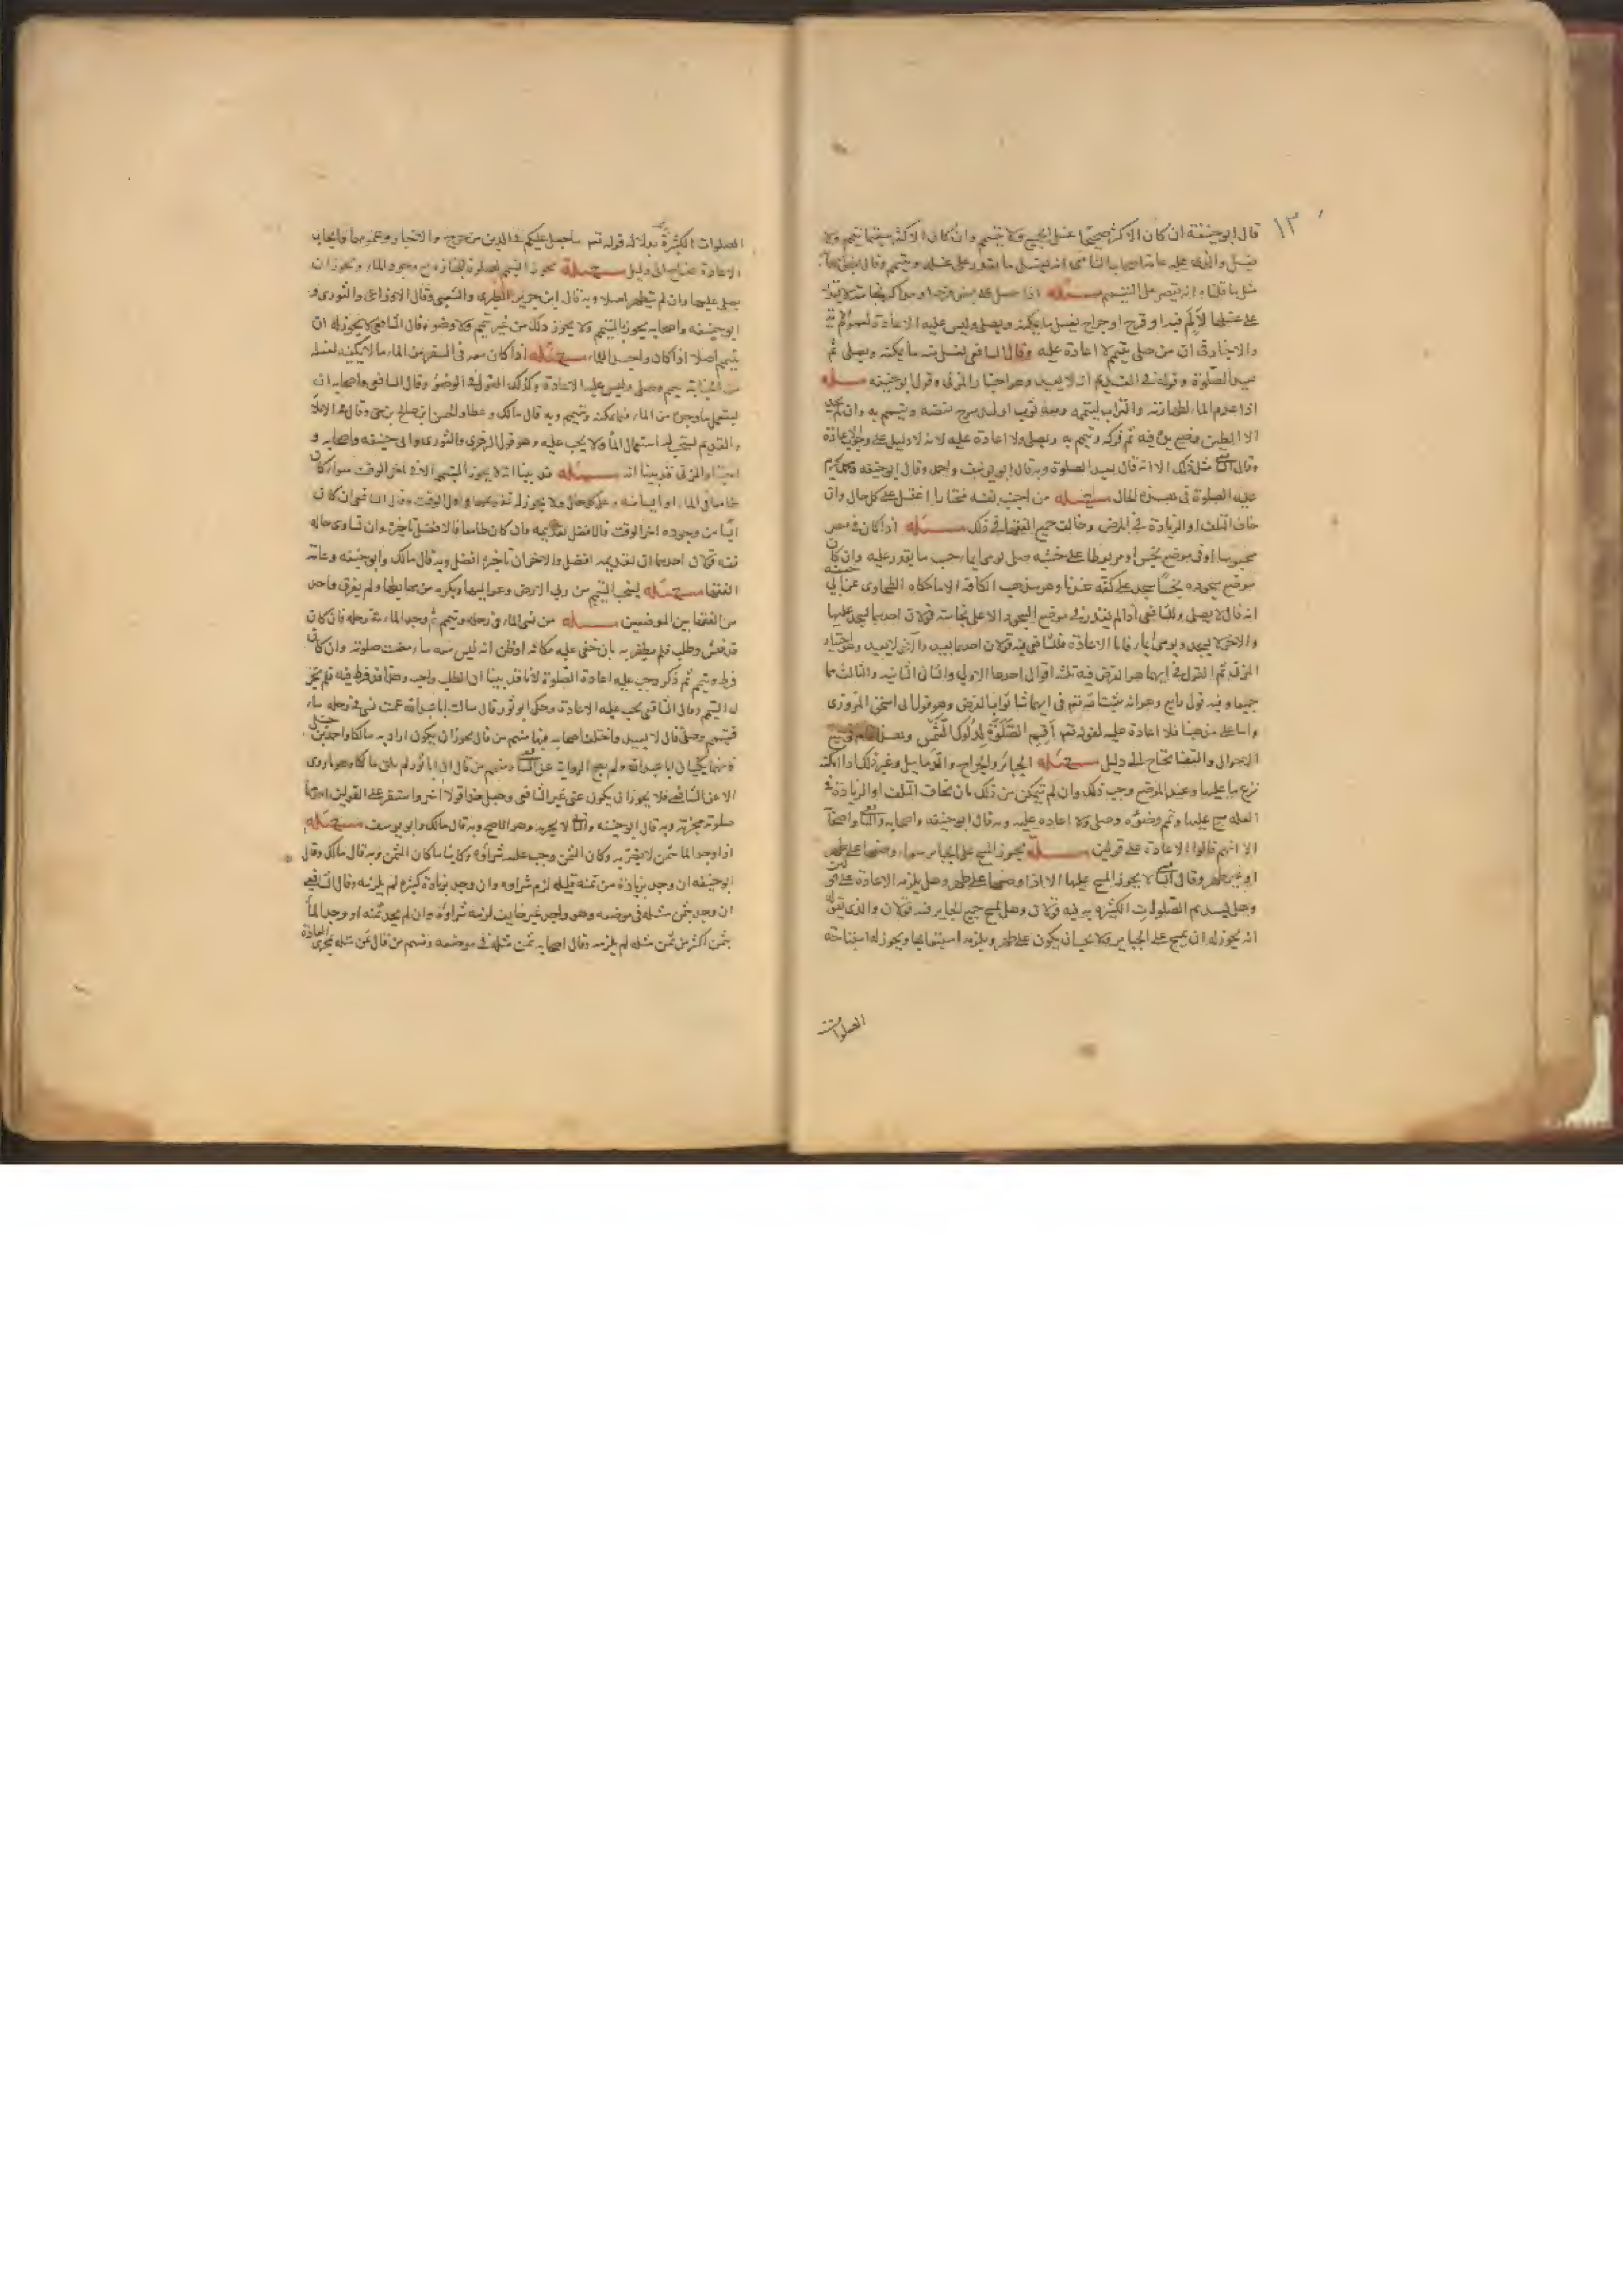 ١٣
قال ابو حنيفة ان كان الاكثر صحيحا غسل الجميع ولا يتيمم وان كان الاكثر سقيما تيمم ولا
يغسل والذى عليه عامة اصحاب الشافعى انه يغسل ما يقدر على غسله ويتيمم وقال بعض اصحابه
مثل ما قلناه انه يقتصر على التيمم مسئلة اذا حصل على بعض فرجه او مذاكره نجاسة لا يقدر
على غسلها لالم فيه او قرح او جراح يغسل ما يمكنه ويصلى وليس عليه الاعادة لعموم
والاخبار فى ان من صلى بتيمم لا اعادة عليه وقال الشافعى يغسل منه ما يمكنه ويصلى ثم
يعيد الصلوة وقوله فى القديم انه لا يعيد وهو اختيار المزنى وقول ابو حنيفه مسئله
اذا عدم الماء لطهارته والتراب لتيممه ومعه ثوب او لبد سرج نفضه ويتيمم به وان لم يجد
الا الطين وضع يده فيه ثم فركه وتيمم به ويصلى ولا اعادة عليه لانه لا دليل على وجوب الاعادة
وقال مثل ذلك الا انه قال يعيد الصلوة وبه قال ابو يوسف واحمد وقال ابو حنيفه
عليه الصلوة فى هذه الحال مسئله من اجنب نفسه مختارا اغتسل على كل حال وان
خاف التلف او الزيادة فى المرض وخالف جميع الفقهاء فى ذلك مسئله اذا كان فى مصر
محبوسا او فى موضع نجس او مربوطا على خشبه صلى يومى ايماء حسب ما يقدر عليه وان كان
موضع سجوده نجسا سجد على كفه عندنا وهو مذهب الكافه الا ما حكاه الطحاوى عن ابى حنيفه
انه قال لا يصلى وللشافعى اذا لم يقدر فى موضع السجود الا على نجاسة قولان احدهما يسجد عليها
والاخر لا يسجد ويومى ايماء فاما الاعادة فللشافعى فيه قولان احدهما يعيد والآخر لا يعيد وهو اختيار
المزنى ثم القول فى ايهما هو الفرض فيه ثلثه اقوال احدها الاولى والثانى الثانيه والثالث هما
جميعا وفيه قول رابع وهو انه يثيبه الله تعم فى ايهما شا ثواب الفرض وهو قول ابى اسحق المروزى
واما على مذهبنا فلا اعادة عليه لقوله تعم أقم الصلوة لدلوك الشمس وهذا عام فى جميع
الاحوال والقضا يحتاج الى دليل مسئله الجبائر والجراح والدماميل وغير ذلك اذا امكنه
نزع ما عليها وغسل الموضع وجب ذلك وان لم يتمكن من ذلك بان يخاف التلف او الزيادة فى
العله مسح عليها وتمم وضوءه وصلى ولا اعاده عليه وبه قال ابو حنيفه واصحابه
الا انهم قالوا الاعادة على قولين مسئلة يجوز المسح على الجبائر سواء وضعها على طهر
او غير طهر وقال لا يجوز المسح عليها الا اذا وضعها على طهر وهل يلزمه الاعادة على قولين
وهل يستديم الصلوات الكثيره به فيه قولان وهل يمسح جميع الجبائر فيه قولان والذى نقوله
انه يجوز له ان يمسح على الجبائر ولا يجب ان يكون على طهر ويلزمه استيعابها ويجوز له استباحة
الصلوات
الصلوات الكثيرة بدلالة قوله تعم ما جعل عليكم فى الدين من حرج والاخبار وعمومها وايجاب
الاعادة يحتاج الى دليل مسئلة يجوز التيمم لصلوة الجنازه مع وجود الماء ويجوز ان
يصلى عليها وان لم يتطهر اصلا وبه قال ابن جرير الطبرى والشعبى وقال الاوزاعى والثورى و
ابو حنيفه واصحابه يجوز بالتيمم ولا يجوز ذلك من غير تيمم ولا وضوء وقال الشافعى لا يجوز له ان
يتيمم اصلا اذا كان واجدا للماء مسئله اذا كان معه فى السفر من الماء ما لا يكفيه لغسله
من الجنابة تيمم وصلى وليس عليه الاعادة وكذلك القول فى الوضوء وقال الشافعى واصحابه انه
يستعمل ما وجده من الماء فيما يمكنه ويتيمم وبه قال مالك وعطا والحسن ابن صالح بن حى وقال فى الاملاء
والقديم يستحب له استعمال الماء ولا يجب عليه وهو قول الزهرى والثورى وابى حنيفه واصحابه و
اختيار المزنى قد بينا انه مسئله قد بينا انه لا يجوز التيمم الا فى اخر الوقت سواء كان
طامعا فى الماء او آيسا منه وعلى كل حال ولا يجوز له تقديمها فى اول الوقت وقال الشافعى ان كان
آيسا من وجوده اخر الوقت فالافضل تقديمه وان كان طامعا فالافضل تاخيره وان تساوى حاله
ففيه قولان احدهما ان تقديمه افضل والاخر ان تأخيره افضل وبه قال مالك وابو حنيفه وعامة
الفقها مسئله يستحب التيمم من ربى الارض وعواليها ويكره من مهابطها ولم يفرق احد
من الفقها بين الموضعين مسئله من نسى الماء فى رحله وتيمم ثم وجد الماء فى رحله فان كان
قد فتش وطلب فلم يظفر به بان خفى عليه مكانه او ظن انه ليس معه ماء مضت صلوته وان كان
فرط وتيمم ثم ذكر وجب عليه اعادة الصلوة لانا قد بينا ان الطلب واجب وهذا قد فرط فيه فلم يجز
له التيمم وقال الشافعى يجب عليه الاعادة وحكى ابو ثور قال سالت ابا عبد الله عمن نسى فى رحله ماء
فتيمم وصلى قال لا يعيد واختلف اصحابه فيها فمنهم من قال يجوز ان يكون اراد به مالكا واحمد بن حنبل
فانهما يكنيان ابا عبد الله ولم يصح الرواية عن ومنهم من قال ان ابا ثور لم يلق مالكا وما روى
الا عن الشافعى فلا يجوز ان يكون عنى غير الشافعى وجعل هذا قولا آخر واستقر على القولين احدهما
صلوته مجزية وبه قال ابو حنيفه لا يجزيه وهو الاصح وبه قال مالك وابو يوسف مسئله
اذا وجد الماء بثمن لا يضر به وكان الثمن وجب عليه شراؤه وكائنا ما كان الثمن وبه قال مالك وقال
ابو حنيفه ان وجد بزيادة من ثمنه قليله لزم شراوه وان وجد بزيادة كثيره لم يلزمه وقال الشافعى
ان وجد بثمن مثله فى موضعه وهو واجد غير خايف لزمه شراؤه وان لم يجد ثمنه او وجد الماء
بثمن اكثر من ثمن مثله لم يلزمه وقال اصحابه ثمن مثله فى موضعه ومنهم من قال ثمن مثله بمجرى العادة